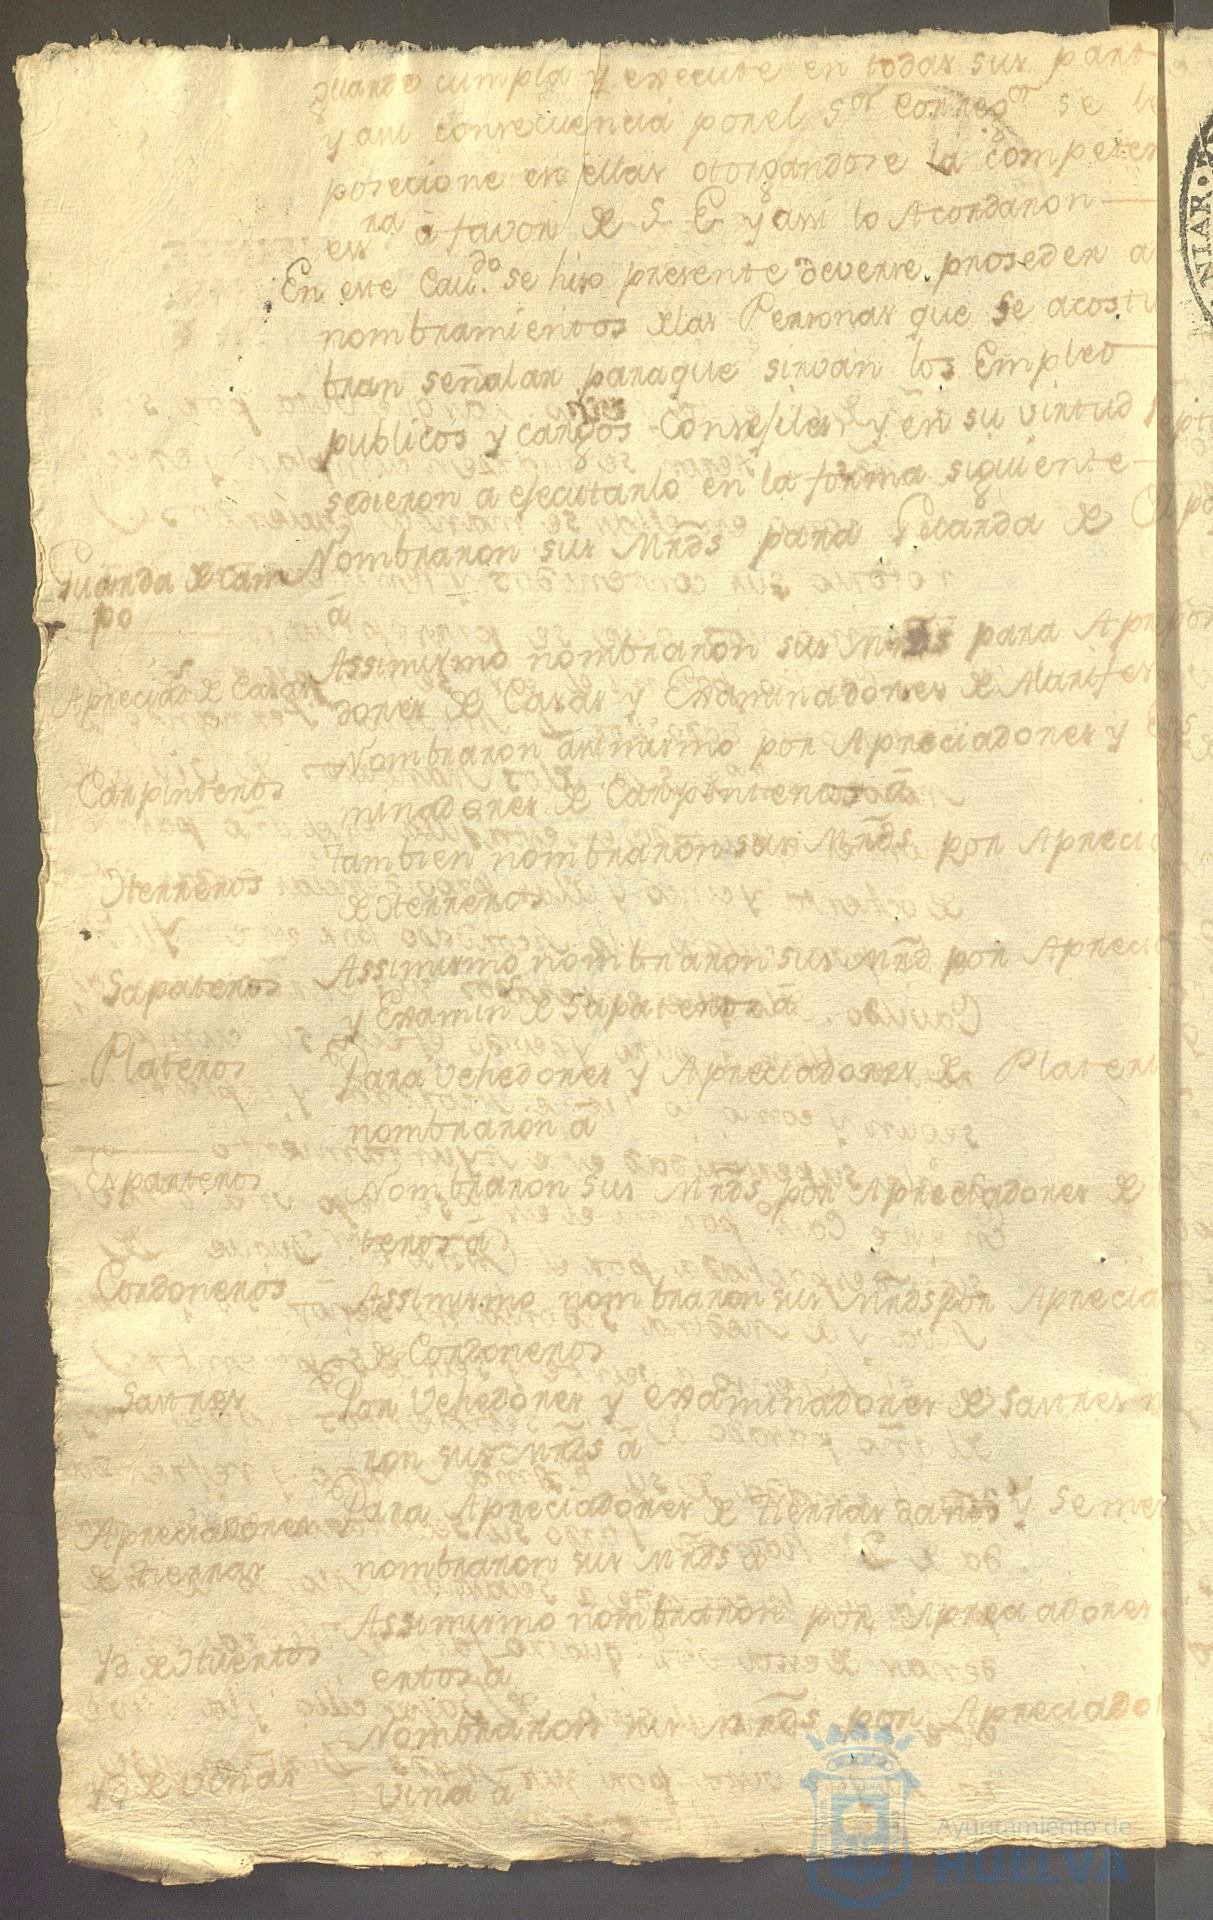 guarde cumpla y execute en todas sus part
y assi consecuencia por el Sor Corregor se le
posecione en ellas otorgandose la competen
esra a favor de S. E. y assi lo Acordaron
En este Caudo se hiso presente deverse proseder a
nombramientos de las Personas que se acostu
bran señalar para que sirvan los Empleo
publicos y cargos Consejiles y en su virtud
sedieron a ejecutarlo en la forma siguiente
Guarda de Cam
po
Nombraron sus Mrds para Guarda de C
â
Apreciads de Casas
Assimismo nombraron sus Mrds para Apr
dores de Casas y Examinadores de Alarifes
Carpinteros
Nombraron assimismo por Apreciadores y E
minadores de Carpinteros â
Herreros
tambien nombraron sus Mrds por Aprecia
de Herreros
Sapateros
Assimismo nombraron sus Mrd por Apreci
y Examin de Sapateros â
Plateros
Para Vehedores y Apreciadores de Plater
nombraron â
Esparteros
Nombraron sus Mrds por Apreciadores de
teros â
Cordoneros
Assimismo nombraron sus Mrds por Aprecia
de Cordoneros
Sastres
Por Vehedores y examinadores de Sastres n
ron sus Mrds â
Apreciadores
de tierras
Para Apreciadores de tierras daños y seme
nombraron sus Mrds â
Yd de Huertos
Assimismo nombraron por Apreciadores
ertos â
Yd de Viñas
Nombraron sus Mrds por Apreciado
Viña â
Ayuntamiento de
HUELVA